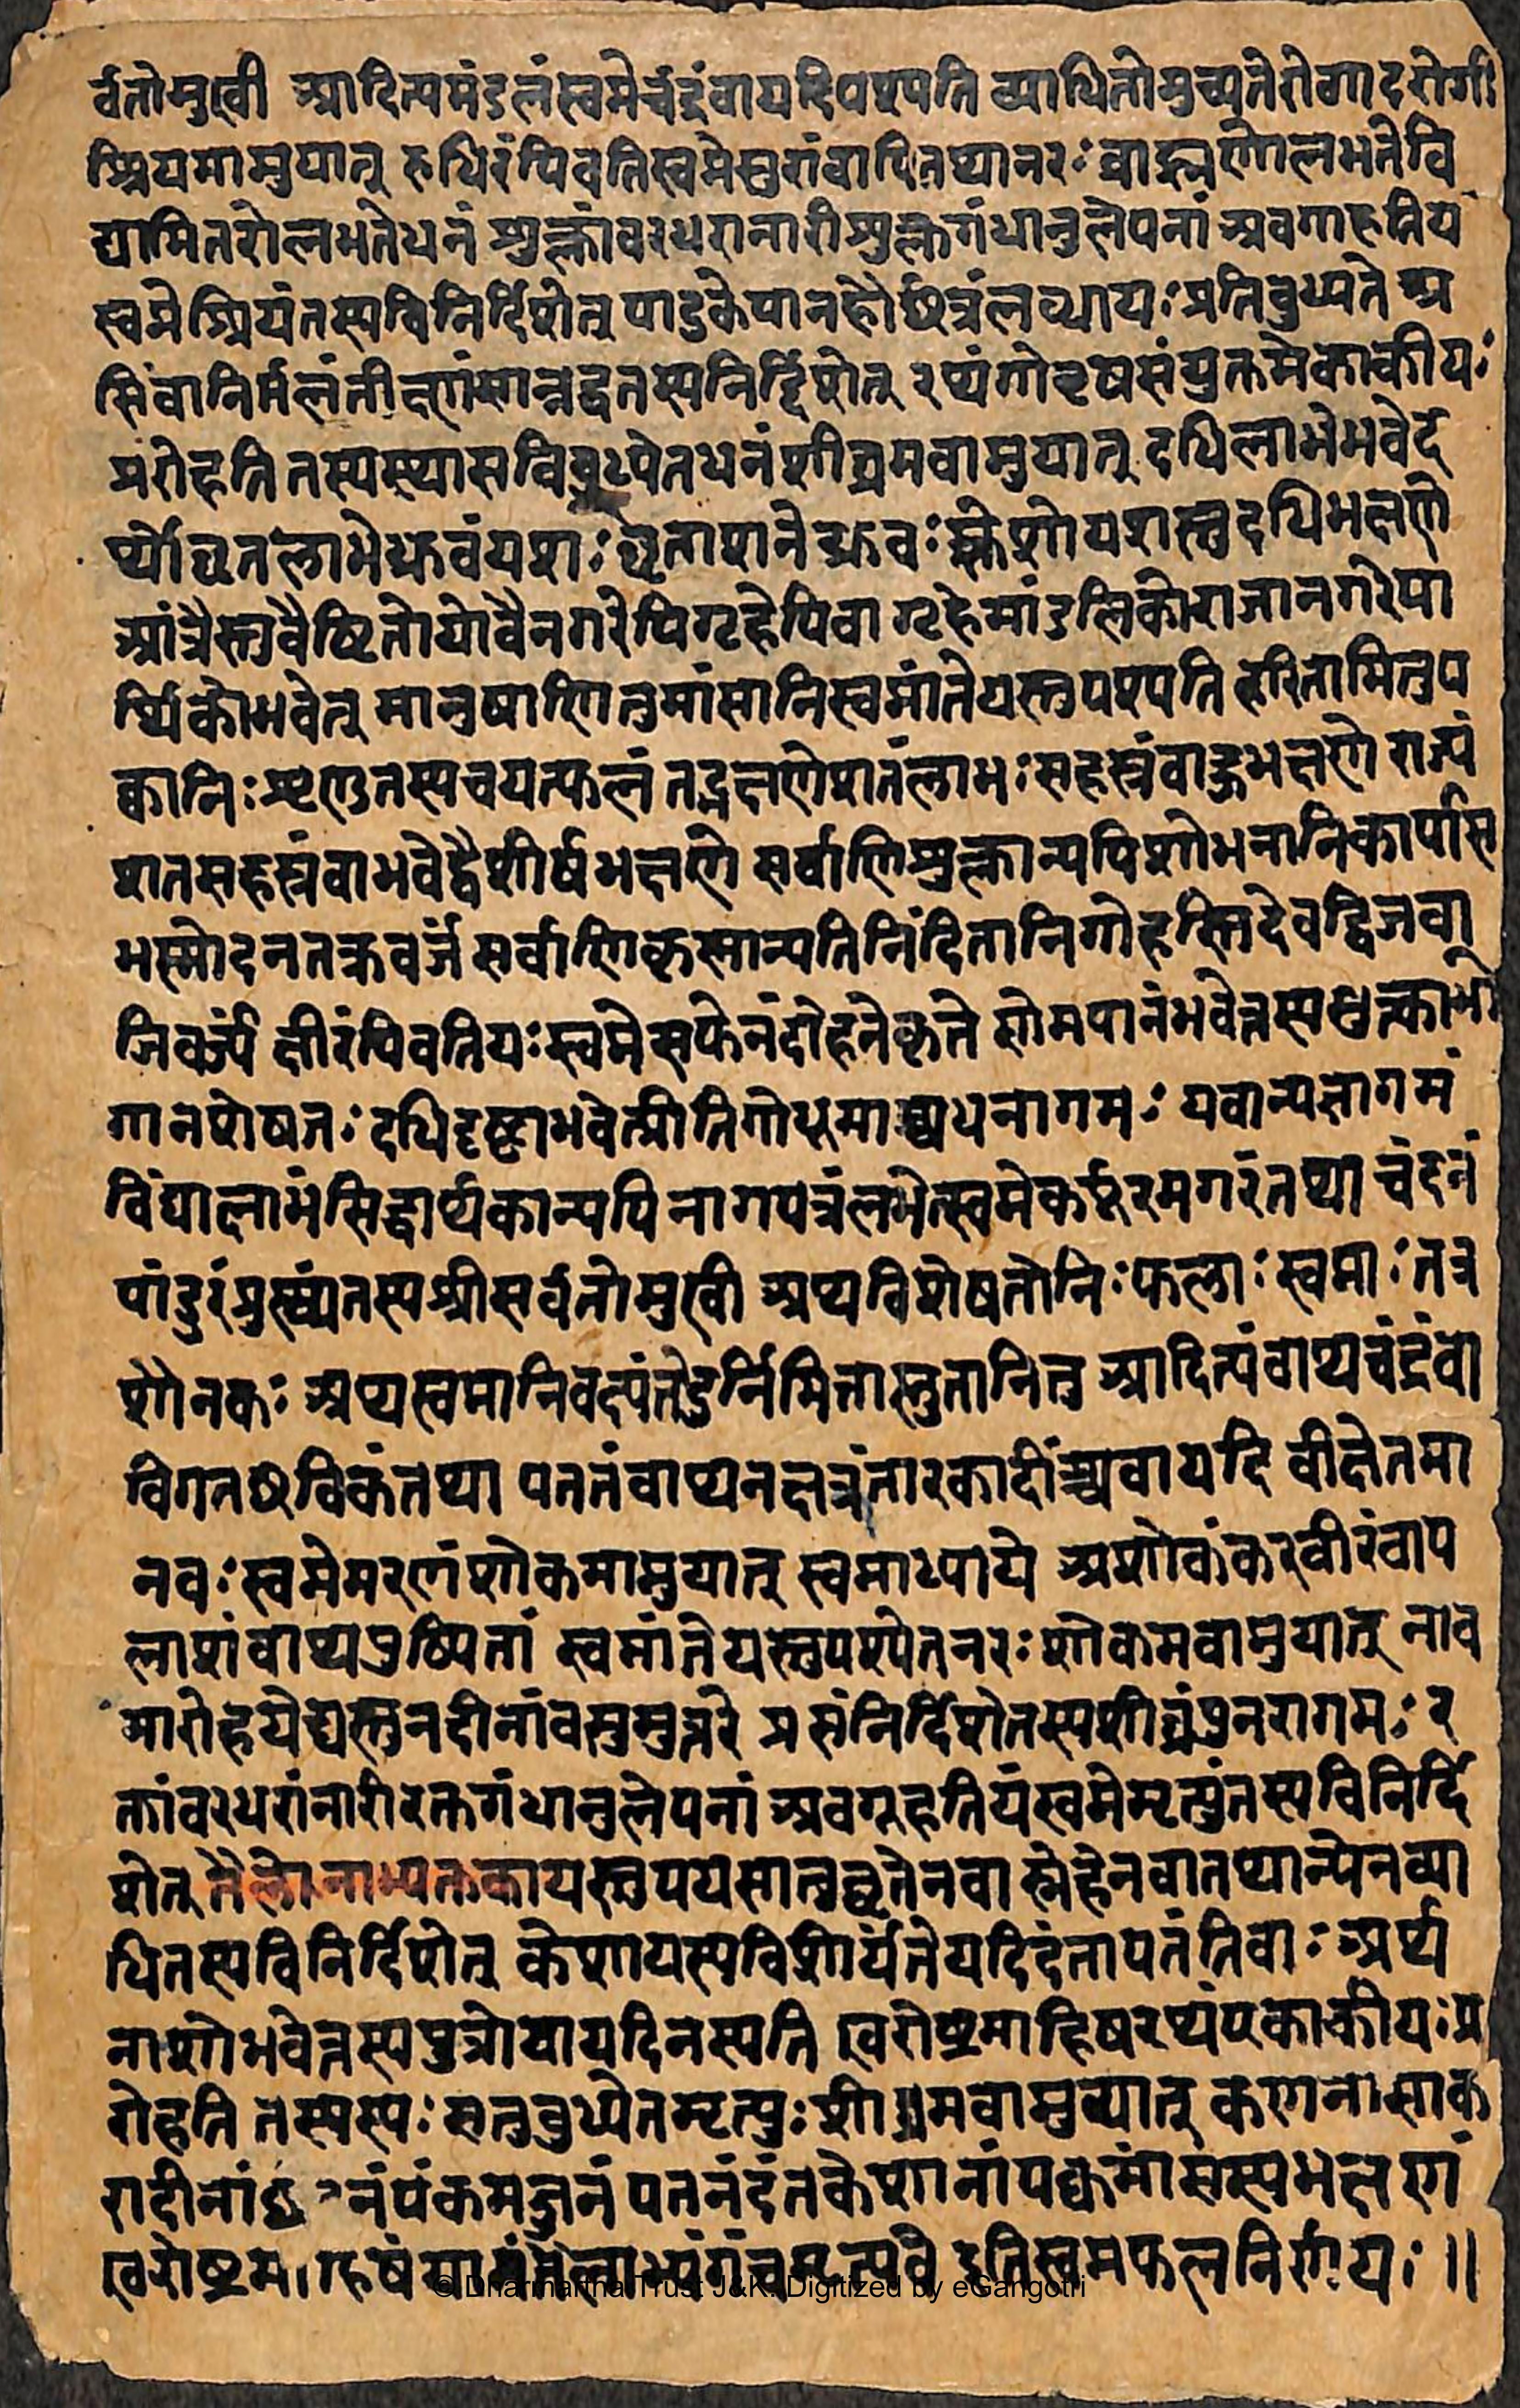 र्वतोमुखी आदित्यमंडलंस्वप्नेचंद्रंवायदिपश्यति व्याधितोमुच्यतेरोगादरोगी
श्रियमाप्नुयात् रुधिरंपिवतिस्वप्नेसुरांवापितथानरः ब्राह्मणोलभतेवि
द्यामितरोलभतेधनं शुक्लांवरधरानारीशुक्लगंधानुलेपनां अवगाहतिय
स्वप्नेश्रियंतस्यविनिर्दिशेत् पादुकेपानहौछत्रंलव्धायःप्रतिवुध्यते अ
सिंवानिर्मलंतीक्ष्णंसान्नद्धतस्यनिर्द्दिशेत् रथ्यंगोवृषसंयुक्तमेकाकीयः
प्ररोहति तस्यस्थासविवुध्येतधनंशीघ्रमवाप्नुयात् दधिलाभेभवेद
र्थोघृतलाभेध्रुवंयशः घृताशनेध्रुवःक्लेशोयशस्तुदधिभक्षणे
आंत्रैस्तुवेष्टितोयोवैनगरेपिगृहेपिवा गृहेमांडलिकोराजानगरेपा
र्थिकोभवेत् मानुषाणितुमांसानिस्वप्नांतेयस्तुपश्यति हरितामितुप
क्वानिःशृणुतस्यचयत्फलं तद्भक्षणेशतंलाभःसहस्रंवाहुभक्षणे राज्यं
शतसहस्रंवाभवेद्वैशीर्षभक्षणे सर्वाणिशुक्लान्यपिशोभनानिकार्पास
भस्मोदनतक्रवर्जं सर्वाणिकृष्णान्यतिनिंदितानिगोहस्तिदेवद्विजवा
जिवर्ज्यं क्षीरंपिवतियःस्वप्नेसफेनंदोहनेकृते सोमपानंभवेत्तस्य
गानशेषतः दधिदृष्टाभवेत्प्रीतिगोधूमाश्चधनागमः यवान्यज्ञागमं
विंद्यालाभंसिद्धार्थकान्यपि नागपत्रंलभेत्स्वप्नेकर्पूरमगरंतथा चंदनं
पांडुरंपुस्थंतस्यश्रीसर्वतोमुखी अथविशेषतोनिःफलाःस्वप्नाःतत्र
शौनकः अथस्वप्नानिवक्ष्यंतेदुर्निमितास्तुतानितु आदित्यंवाथचंद्रंवा
विगतछविकंतथा पतनंवाथनक्षत्रंतारकादींश्चवायदि वीक्षेतमा
नवःस्वप्नेमरणंशोकमाप्नुयात् स्वप्नाध्याये अशोकंकरवीरंवाप
लाशंवाथपुष्पितां स्वप्नांतेयस्तुपश्येतनरःशोकमवाप्नुयात् नाव
मारोहयेद्यस्तुनदीनांवसुमुत्तरे प्रसंनिर्दिशेतस्यशीघ्रंपुनरागमः र
क्तांवरधरांनारीरक्तगंधानुलेपनां अवगूहतियंस्वप्नेमृत्युंतस्यविनिर्दि
शेत् तैलेनाभ्यक्तकायस्तुपयसातुघृतेनवा स्नेहेनवातथान्येनव्या
धितस्यविनिर्दिशेत् केशायस्यविशीर्यंतेयदिदंतापतंतिवाः अर्थ
नाशोभवेत्तस्यपुत्रोवायदिनस्यति खरोष्ट्रमाहिषरथ्यंएकाकीयःप्र
रोहति तस्यस्यःसतुवुध्येतमृत्युःशीघ्रमवाप्नुयात् कर्णनासाक
रादीनां नंपंकमज्जनं पतनंदंतकेशानांपक्वमांसस्यभक्षणं
खरोष्ट्रम हिषं इतिस्वप्नफलनिर्णयः ॥
© Dharmartha Trust J&K. Digitized by eGangotri